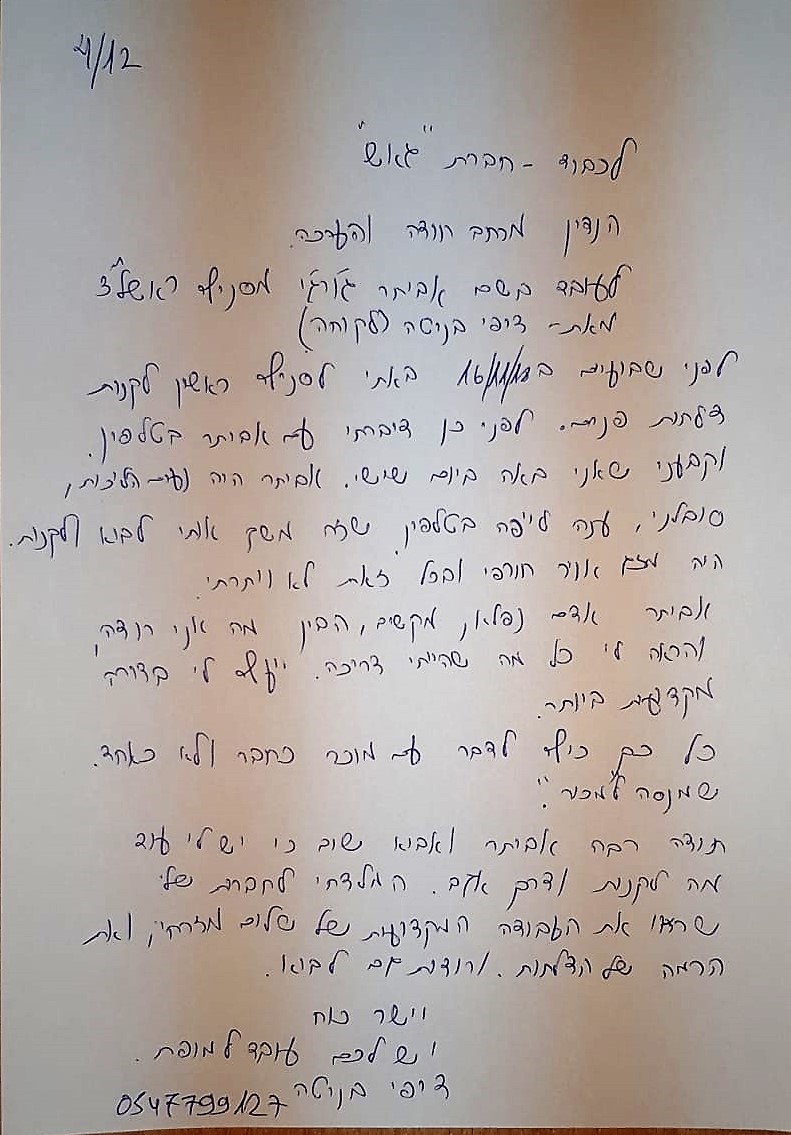 4/12
לכבוד - חברת "גאש"
הנדון מכתב תודה והערכה.
לעובד בשם אביתר ג'ורג'י מסניף ראשל"צ
מאת- ציפי בניטה (לקוחה)
לפני שבועיים ב 16/11/18 באתי לסניף ראשון לקנות
דלתות פנים. לפני כן דיברתי עם אביתר בטלפון.
וקבעתי שאני באה ביום שישי. אביתר היה נעים הליכות,
סובלני, ענה לי יפה בטלפון שזה משך אותי לבוא ולקנות.
היה מזג אוויר חורפי ובכל זאת לא ויתרתי.
אביתר אדם נפלא, מקשיב, הבין מה אני רוצה,
והראה לי כל מה שהייתי צריכה. ייעץ לי בצורה
מקצועית ביותר.
כל כך כיף לדבר עם מוכר כחבר ולא כאחד.
שמנסה "למכור".
תודה רבה אביתר ואבוא שוב כי יש לי עוד
מה לקנות ודרך אגב. המלצתי לחברות שלי
שראו את העבודה המקצועית של שלום מזרחי, ואת
הרמה של הדלתות. ורוצות גם לבוא.
ויישר כוח
ויש לכם עובד למופת.
ציפי בניטה 0547799127